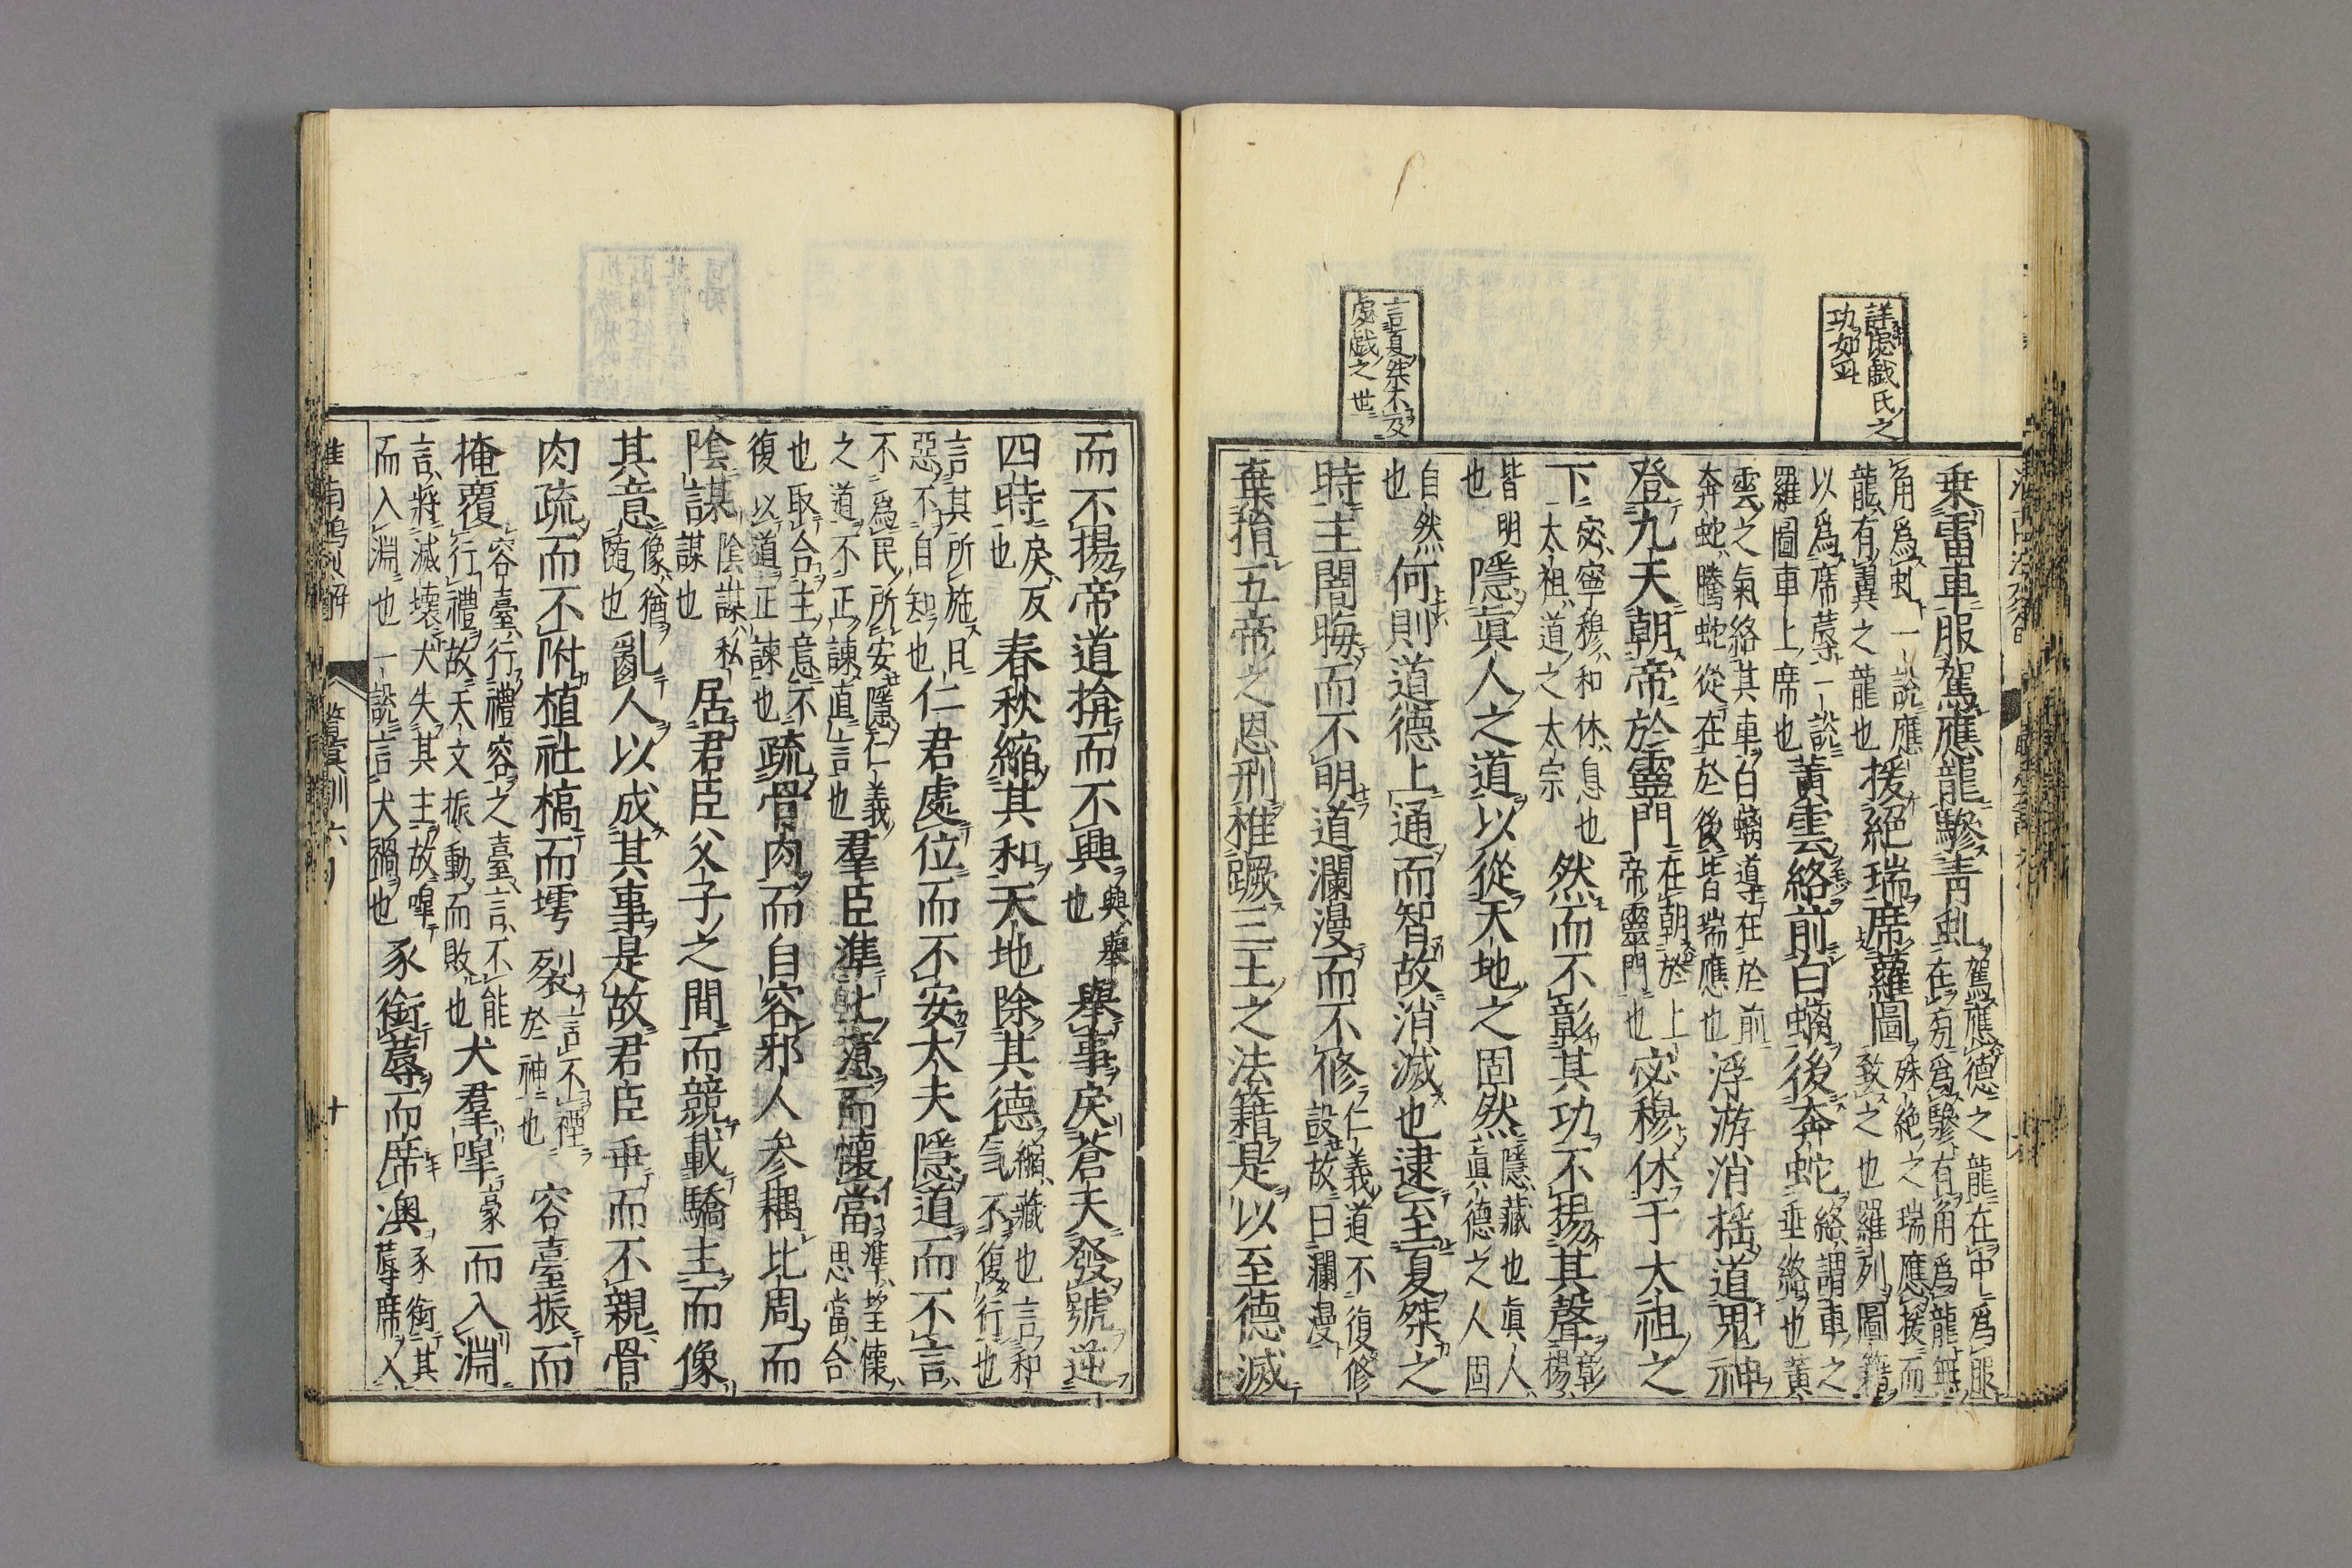 詳虙戯氏之
功如𠀋
言夏桀不及
虙戯之世
乗雷車服駕應龍驂靑虬駕應德之龍在中爲服在旁爲驂有角爲龍無
角爲虬一說應龍有翼之龍也援絕瑞席蘿圖殊絕之瑞應援而致之也羅列圖籍
以爲席蓐一說羅圖車上席也黃雲絡前白螭後奔蛇絡謂車之垂絡也黃
雲之氣絡其車白螭導在於前奔蛇騰蛇從在於後皆瑞應也浮游消揺道鬼神
登九天朝帝於靈門在朝於上帝靈門也宓穆休于太祖之
下宓寧穆和休息也太祖道之太宗然而不彰其功不揚其聲彰揚
皆明也隱眞人之道以從天地之固然隱藏也眞人眞德之人固
自然也何則道德上通而智故消滅也逮至夏桀之
時主闇晦而不明道瀾漫而不修仁義道不復修設故曰瀾漫
棄捐五帝之恩刑推蹶三王之法籍是以至德滅
而不揚帝道揜而不興興舉也舉事戾蒼天發號逆
四時戾反也春秋縮其和天地除其德縮藏也言和気不復行也
言其所施日惡不自知也仁君處位而不安大夫隱道而不言
不爲民所安隱仁義之道不正諫直言也羣臣準上意而懷當準望懷思當合
也取合主意不復以道正諫也疏骨肉而自容邪人参耦比周而
陰謀陰謀私謀也居君臣父子之間而競載驕主而像
其意像猶隨也亂人以成其事是故君臣垂而不親骨
肉疏而不附植社槁而㙤裂言不禋於神也容臺振而
掩覆容臺行禮容之臺言不能行禮故天文振動而敗也犬羣嘷豪而入淵
言將滅壊犬失其主故嘷而入淵也一說言犬禍也豕銜蓐而席澳豕銜其蓐席入
淮南鴻烈解
覽冥訓六
十